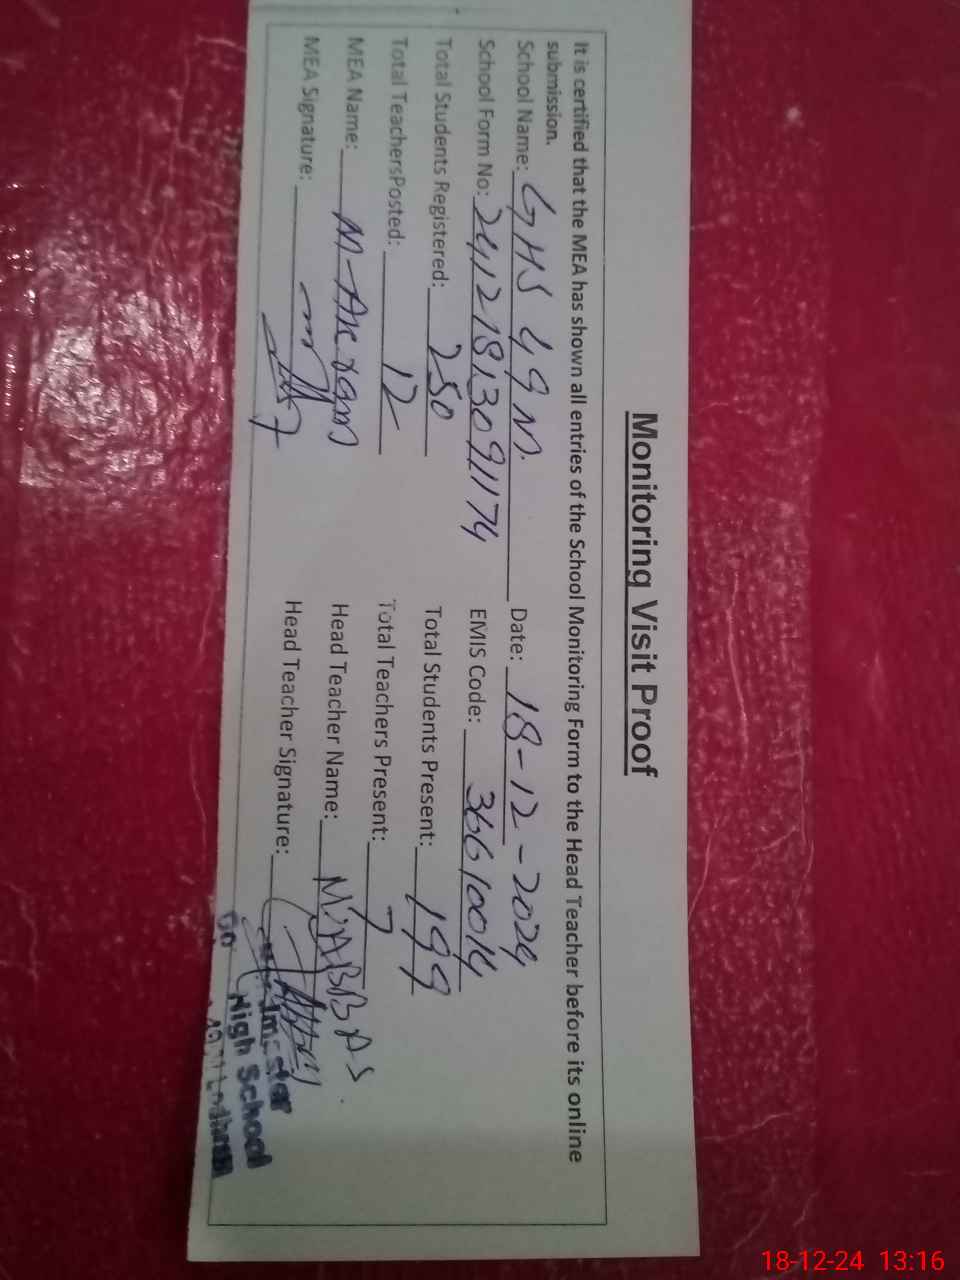 Monitoring Visit Proof
It is certified that the MEA has shown all entries of the School Monitoring Form to the Head Teacher before its online
submission.
School Name: GHS 49 M. Date: 18-12-2024
School Form No: 24121813091174 EMIS Code: 36610014
Total Students Registered: 250 Total Students Present: 199
Total TeachersPosted: 12 Total Teachers Present: 7
MEA Name: M-Akram Head Teacher Name: M.ABBAS
MEA Signature: Head Teacher Signature:
High School
18-12-24 13:16